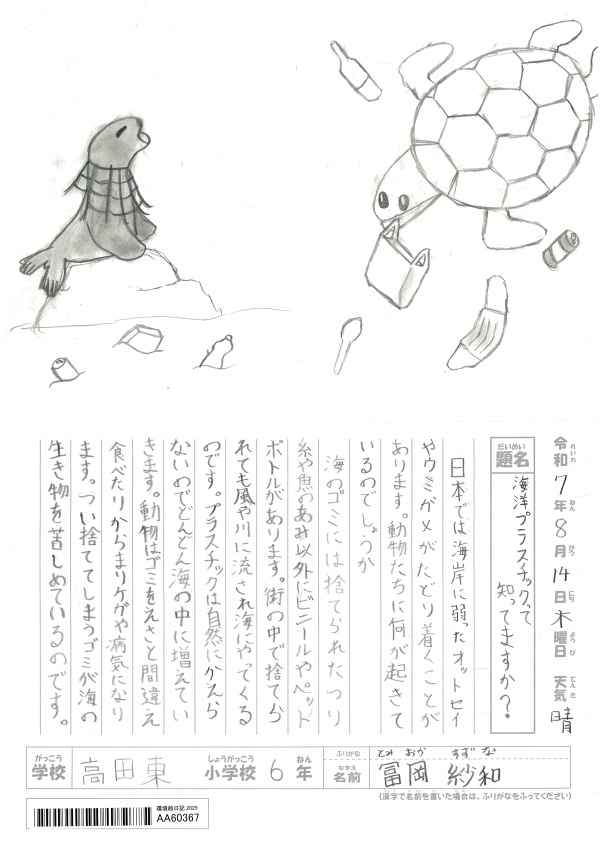 令和7年8月14日木曜日 天気 晴
れいわ ねん がつ にち ようび てんき
だいめい
題名 海洋プラスチックって
知ってますか？
日本では海岸に弱ったオットセイ
やウミガメがたどり着くことが
あります。動物たちに何が起きて
いるのでしょうか
海のゴミには捨てられたつり
糸や魚のあみ以外にビニールやペット
ボトルがあります。街の中で捨てら
れても風や川に流され海にやってくる
のです。プラスチックは自然にかえら
ないのでどんどん海の中に増えてい
きます。動物はゴミをえさと間違え
食べたりからまりケガや病気になり
ます。つい捨ててしまうゴミが海の
生き物を苦しめているのです。
がっこう しょうがっこう ねん ふりがな とみ おか すず な
学校 高田東 小学校 6年 なまえ 名前 冨岡 紗和
(漢字で名前を書いた場合は、ふりがなをふってください)
環境絵日記 2025
AA60367